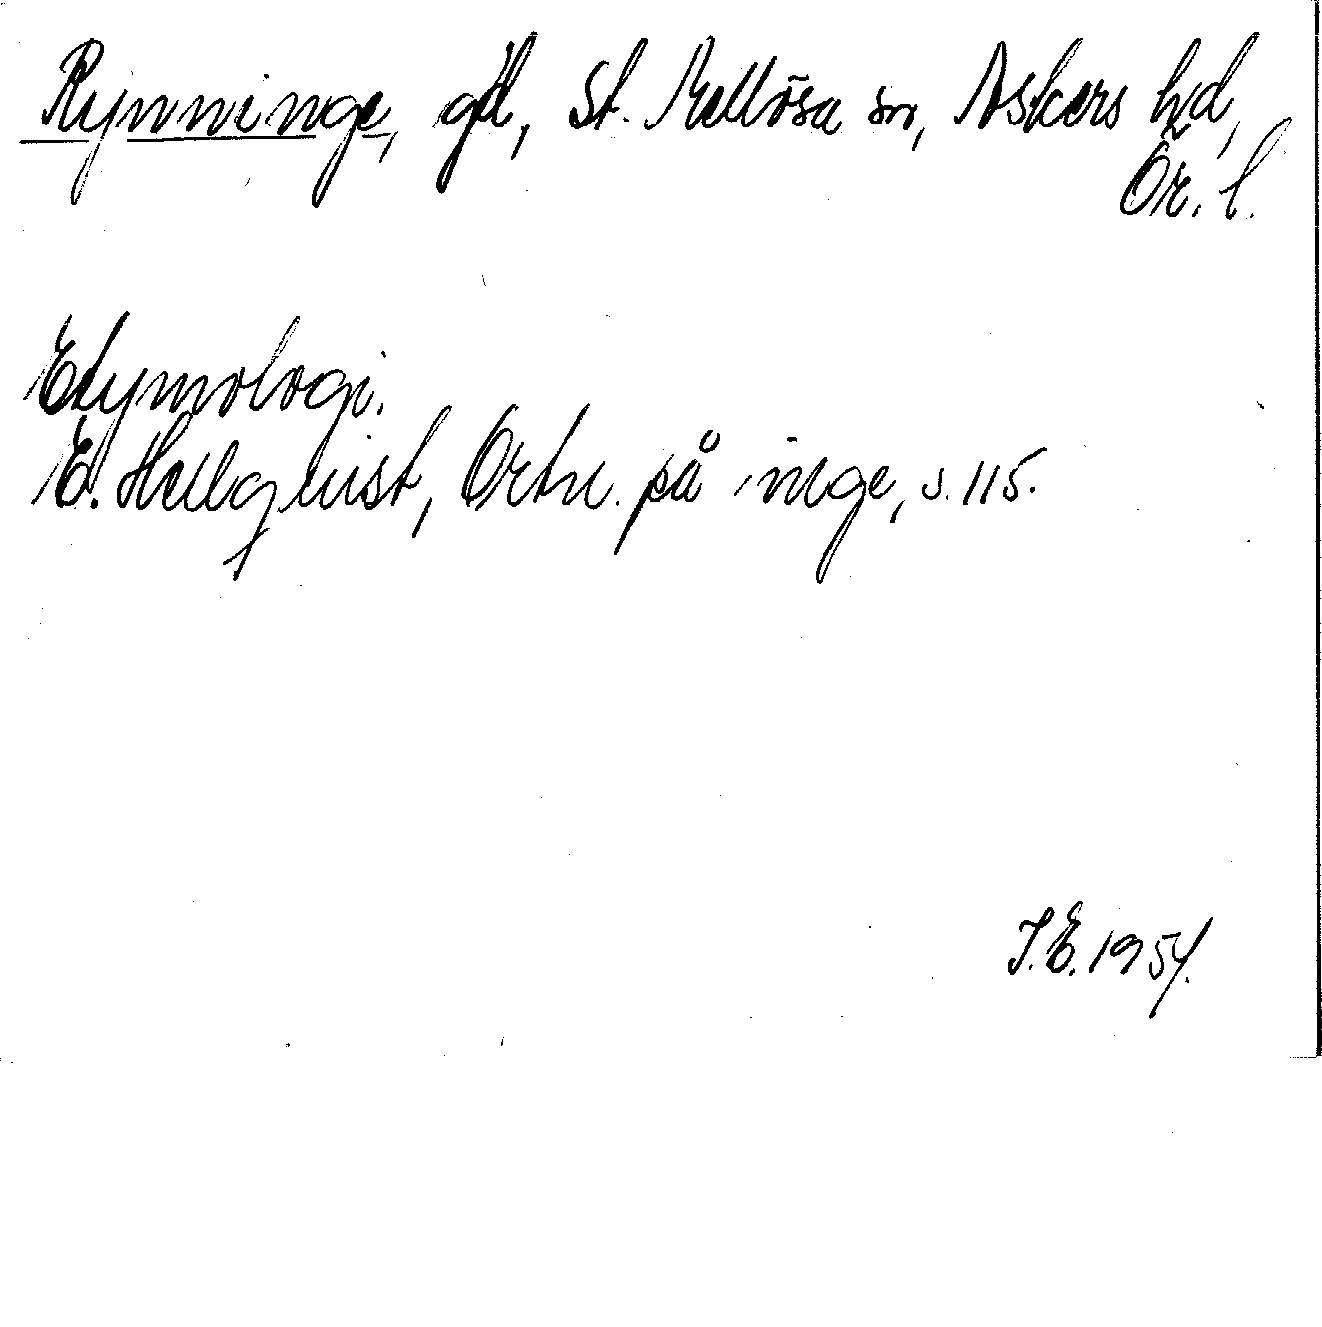 Rynninge, gd, St. Mellösa sn, Askers hd,
Ör. l.
Etymologi.
E. Hellquist, Ortn. på inge, s. 115.
I.E. 1954.